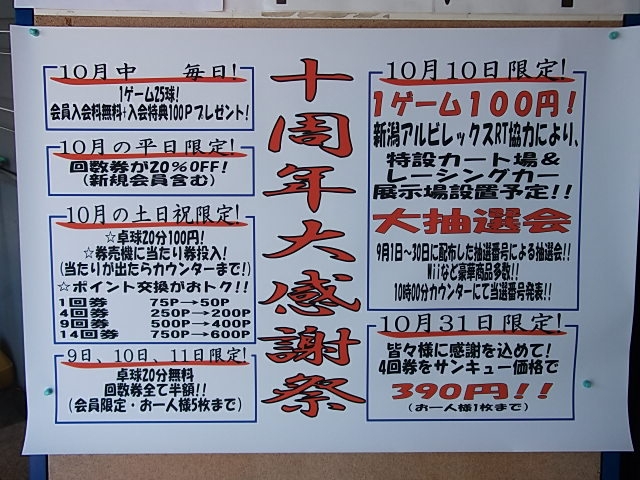 十周年大感謝祭
10月中 毎日!
1ゲーム25球!
会員入会料無料+入会特典100Pプレゼント!
10月の平日限定!
回数券が20%OFF!
(新規会員含む)
10月の土日祝限定!
☆卓球20分100円!
☆券売機に当たり券投入!
(当たりが出たらカウンターまで!)
☆ポイント交換がおトク!!
1回券 75P→50P
4回券 250P→200P
9回券 500P→400P
14回券 750P→600P
9日、10日、11日限定!
卓球20分無料
回数券全て半額!!
(会員限定・お一人様5枚まで)
10月10日限定!
1ゲーム100円!
新潟アルビレックスRT協力により、
特設カート場&
レーシングカー
展示場設置予定!!
大抽選会
9月1日~30日に配布した抽選番号による抽選会!!
Wiiなど豪華商品多数!!
10時00分カウンターにて当選番号発表!!
10月31日限定!
皆々様に感謝を込めて!
4回券をサンキュー価格で
390円!!
(お一人様1枚まで)